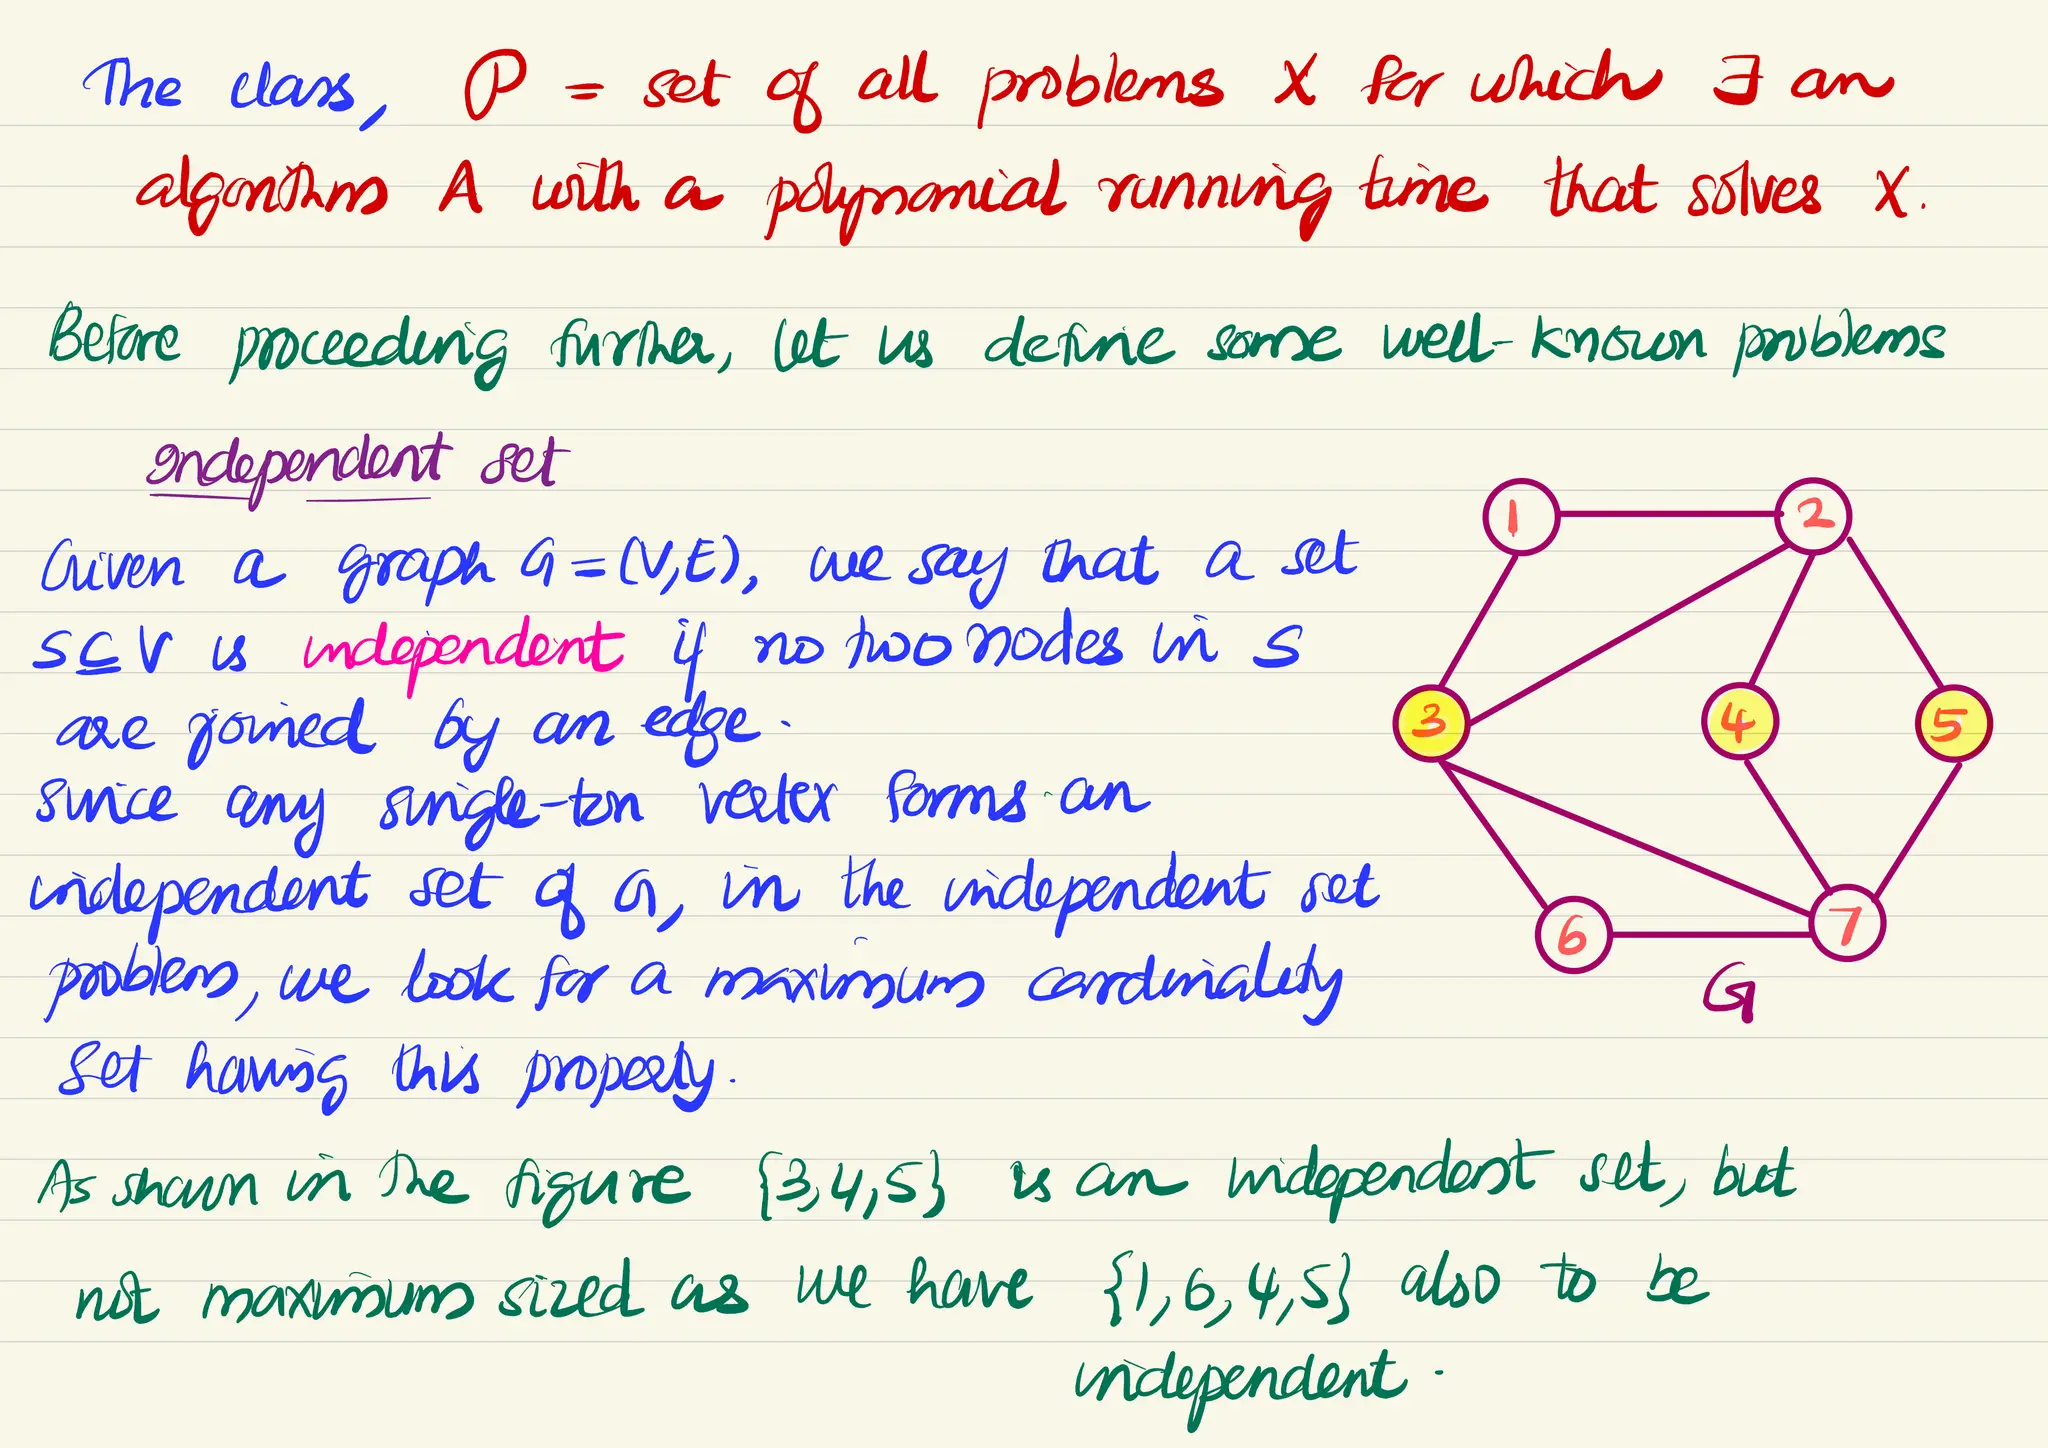 The class, P = set of all problems X for which ∃ an
algorithm A with a polynomial running time that solves X.
Before proceeding further, let us define some well-known problems
Independent set
Given a graph G=(V,E), we say that a set
S⊆V is independent if no two nodes in S
are joined by an edge.
since any single-ton vertex forms an
independent set of G, in the independent set
problem, we look for a maximum cardinality
set having this property.
1
2
3
4
5
6
7
G
As shown in the figure {3,4,5} is an independent set, but
not maximum sized as we have {1,6,4,5} also to be
independent.